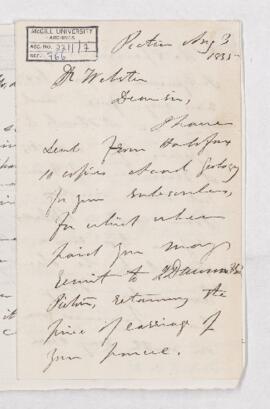 McGILL UNIVERSITY
ARCHIVES
ACC. NO. 2211/7
REF. 966
Pictou Aug 3
1855
Dr Webster
Dear Sir,
I have
sent from Halifax
10 copies Acad Geology
for your subscribers,
for which when
paid you may
remit to J Dawson &
Pictou, retaining the
price of carriage of
your parcel.